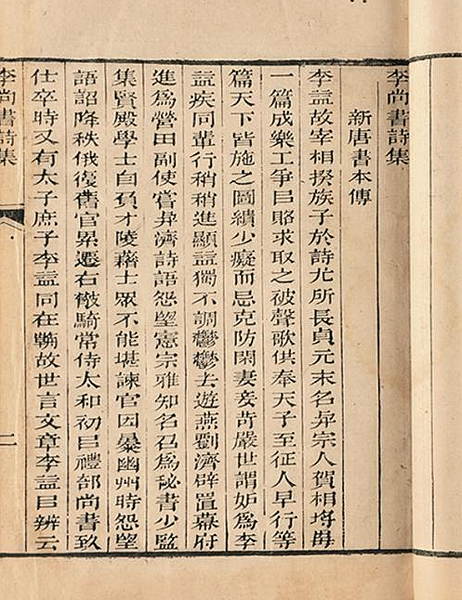 李尚書詩集
新唐書本傳
李益故宰相揆族子於詩尤所長貞元末名异宗人賀相埒每
一篇成樂工爭㠯賂求取之被聲歌供奉天子至征人早行等
篇天下皆施之圖繢少癡而忌克防閑妻妾苛嚴世謂妒爲李
益疾同輩行稍稍進顯益獨不調鬱鬱去遊燕劉濟辟置幕府
進爲營田副使嘗异濟詩語怨望憲宗雅知名召爲秘書少監
集賢殿學士自負才陵藉士眾不能堪諫官因暴幽州時怨望
語詔降秩俄復舊官累遷右散騎常侍大和初㠯禮部尚書致
仕卒時又有太子庶子李益同在朝故世言文章李益㠯辨云
李尚書詩集
二